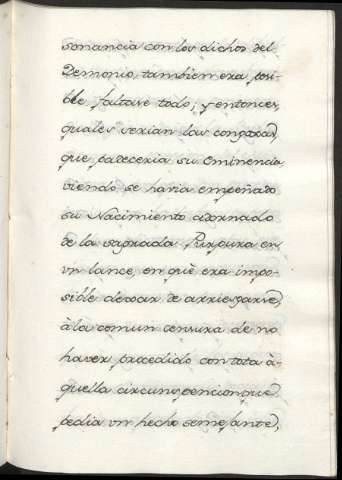 sonancia con los dichos del
Demonio, tambien era posi-
ble faltase todo; y entonces,
quales serian las congoxas,
que padeceria su Eminencia
viendo, se havia empeñado
su Nacimiento adornado
de la sagrada Purpura en
un lance, en què era impo-
sible dexar de arriesgarse,
à la comun censura de no
haver procedido con tota à-
quella circunspeccion que
pedia un hecho semejante,